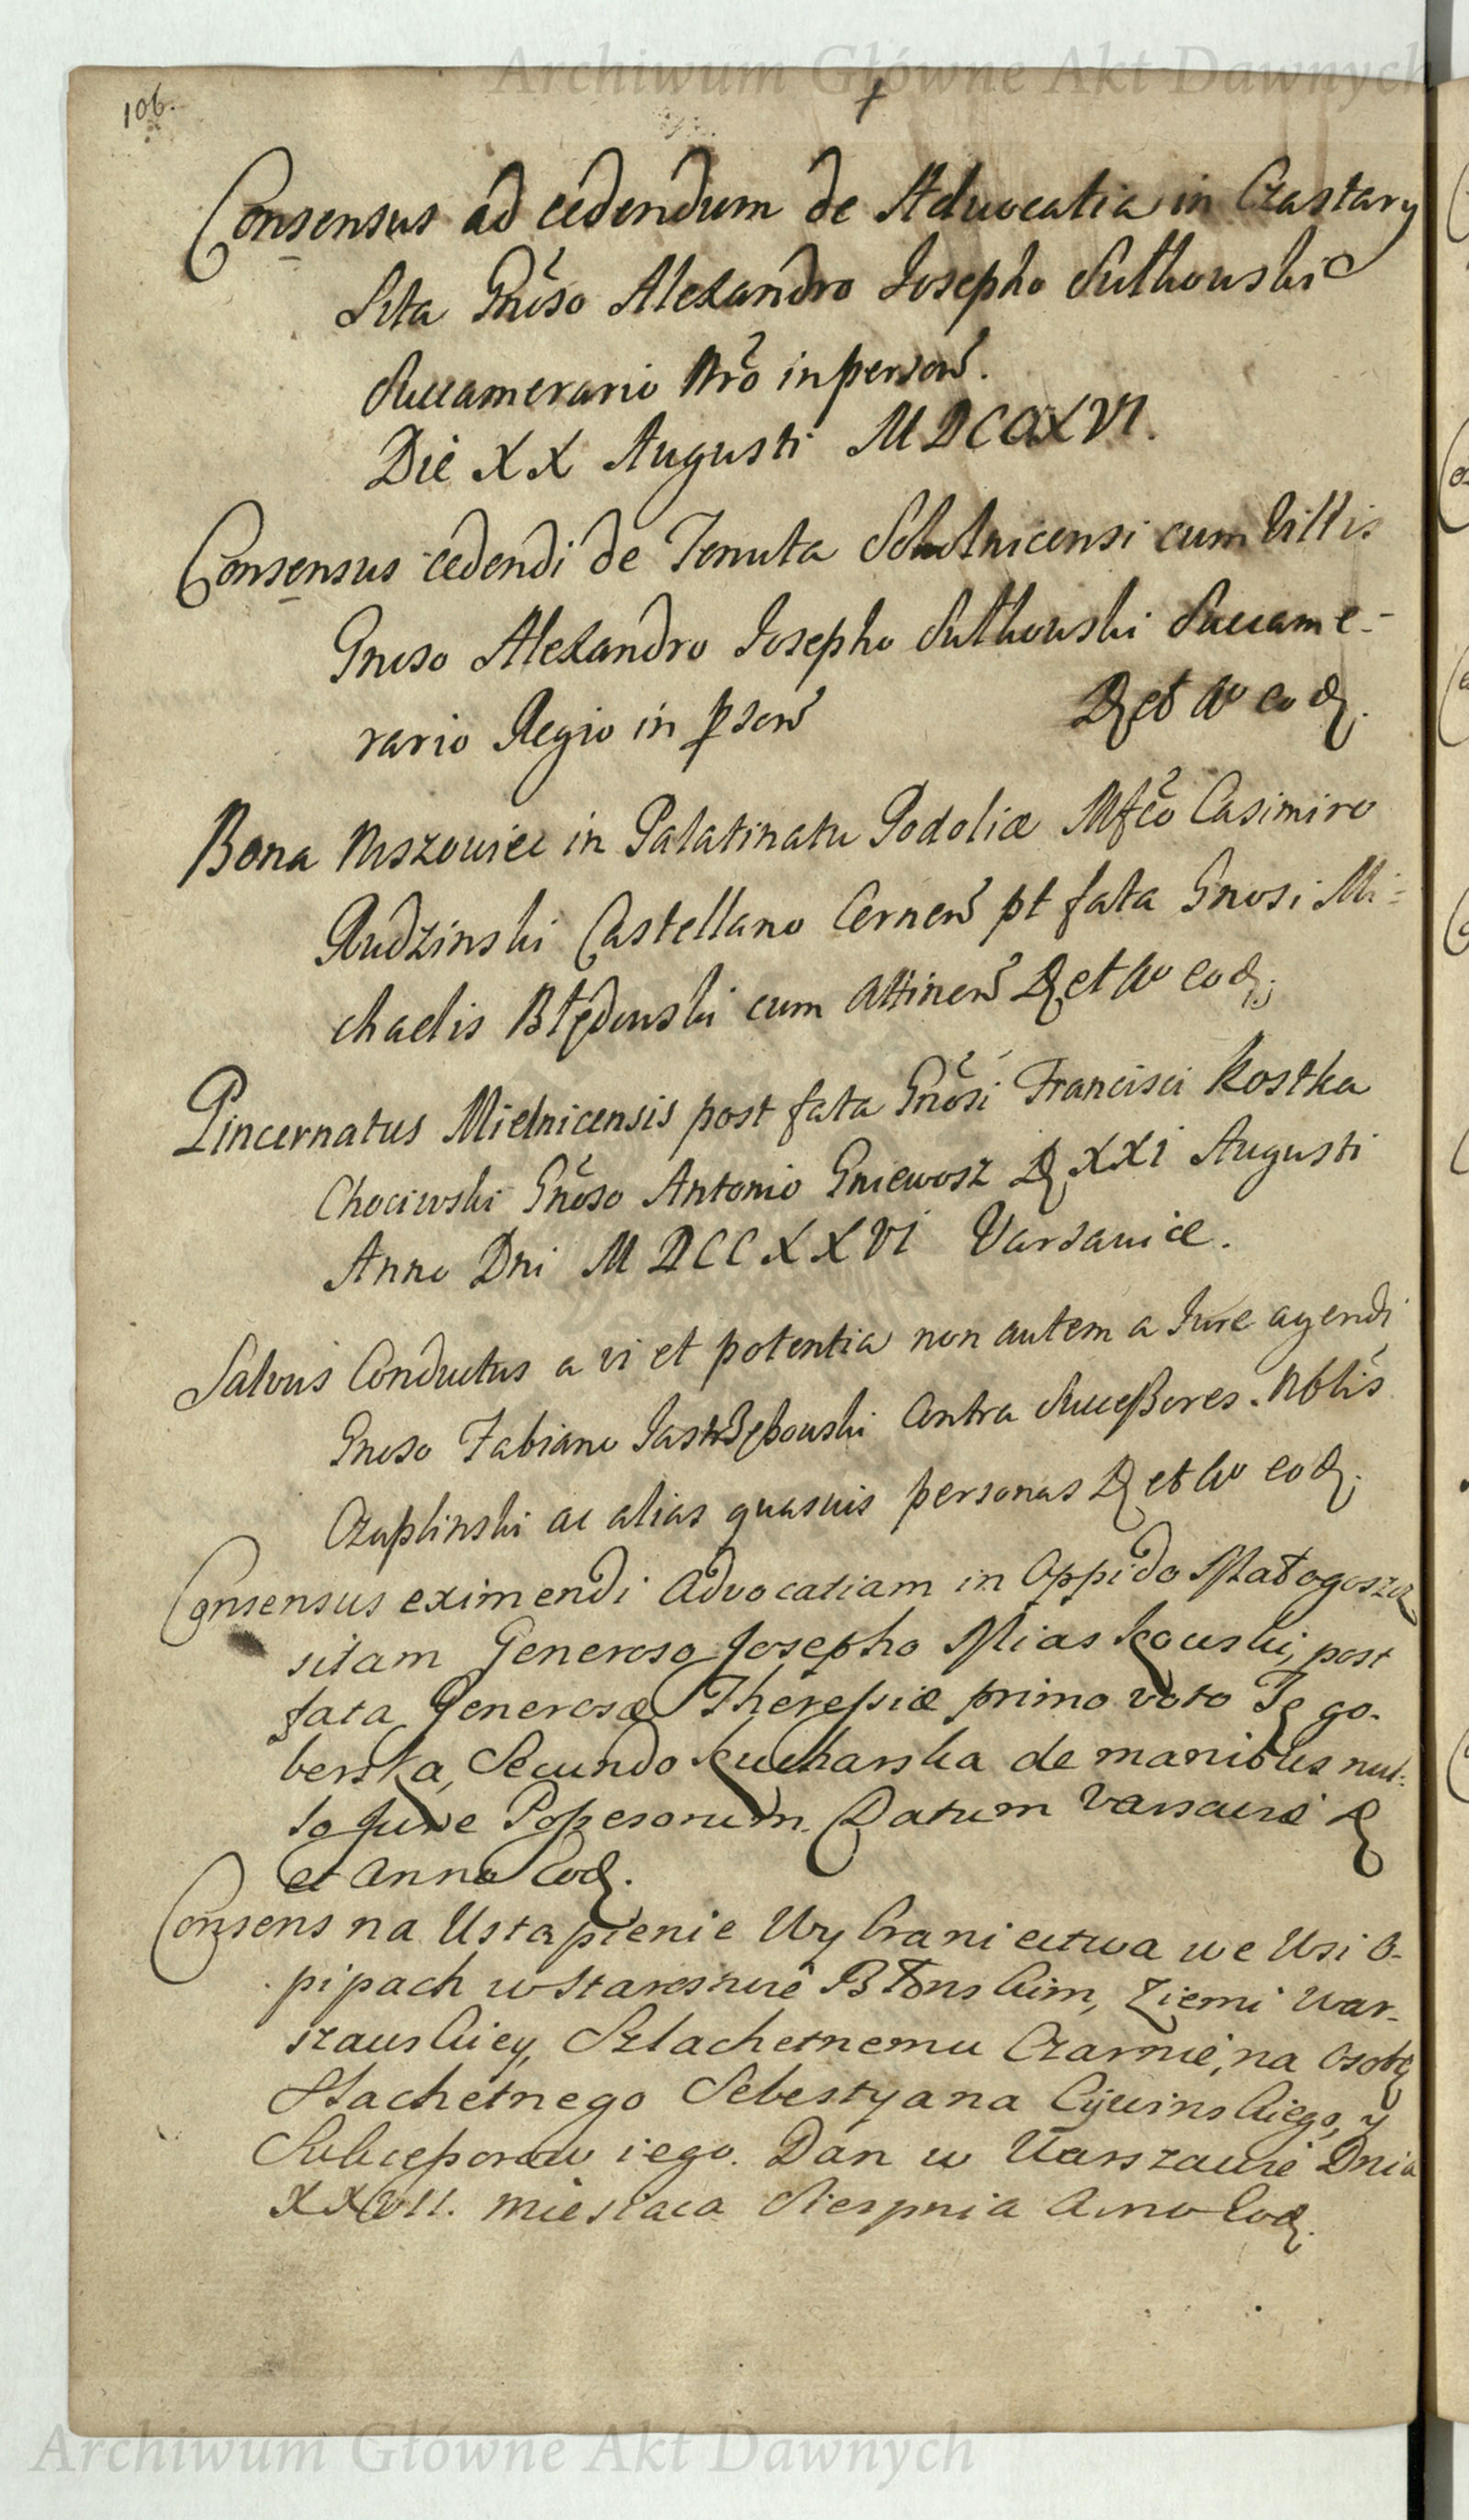 Archiwum Główne Akt Dawnych
106.
Consensus ad cedendum de Advocatia in Czastary
Sita Gnõso Alexandro Josepho Sulkowski
Succamerario Nrõ in person̄.
Die XX Augusti MDCCXXVI.
Consensus cedendi de Tenuta cum Villis
Gnoso Alexandro Josepho Sulkowski Succame-
rario Regio in pson̄ D et Ao eod.
Bona Mszowiec in Palatinatu Podoliæ Mfcõ Casimiro
Rudzinski Castellano Cernen̄ pt fata Gnosi Mi=
chaelis Błędowski cum Attinen̄ D et Ao eod.
Pincernatus Mielnicensis post fata Gnõsi Francisci Kostka
Chociwski Gnõso Antonio Gniewosz D XXI Augusti
Anno Dni MDCCXXVI Varsaviæ.
Salvus Conductus a vi et potentia non autem a Jure agendi
Gnoso Fabiano Jastrzębowski Contra Successores Nblis
Czaplinski ac alias quasvis personas D et Ao eod.
Consensus eximendi Advocatiam in Oppido Małogoszcz
sitam Generoso Josepho Miaskowski, post
fata Generosæ Theressiæ primo voto Tę go-
berska, Secundo Kucharska de manibus nul-
lo Jure Possesorum. Datum Varsavie D
et Anno Eod.
Consens na Ustąpienie Wybraniectwa we Wsi O-
pipach w Starostwie Błonskim, Ziemi War-
szawskiey, Szlachetnemu Czarnie, na Osobę
Slachetnego Sebestyana Cywinskiego, y
Sukcessorow iego. Dan w Warszawie Dnia
XXVII. Miesiaca Sierpnia Anno Eod.
Archiwum Główne Akt Dawnych